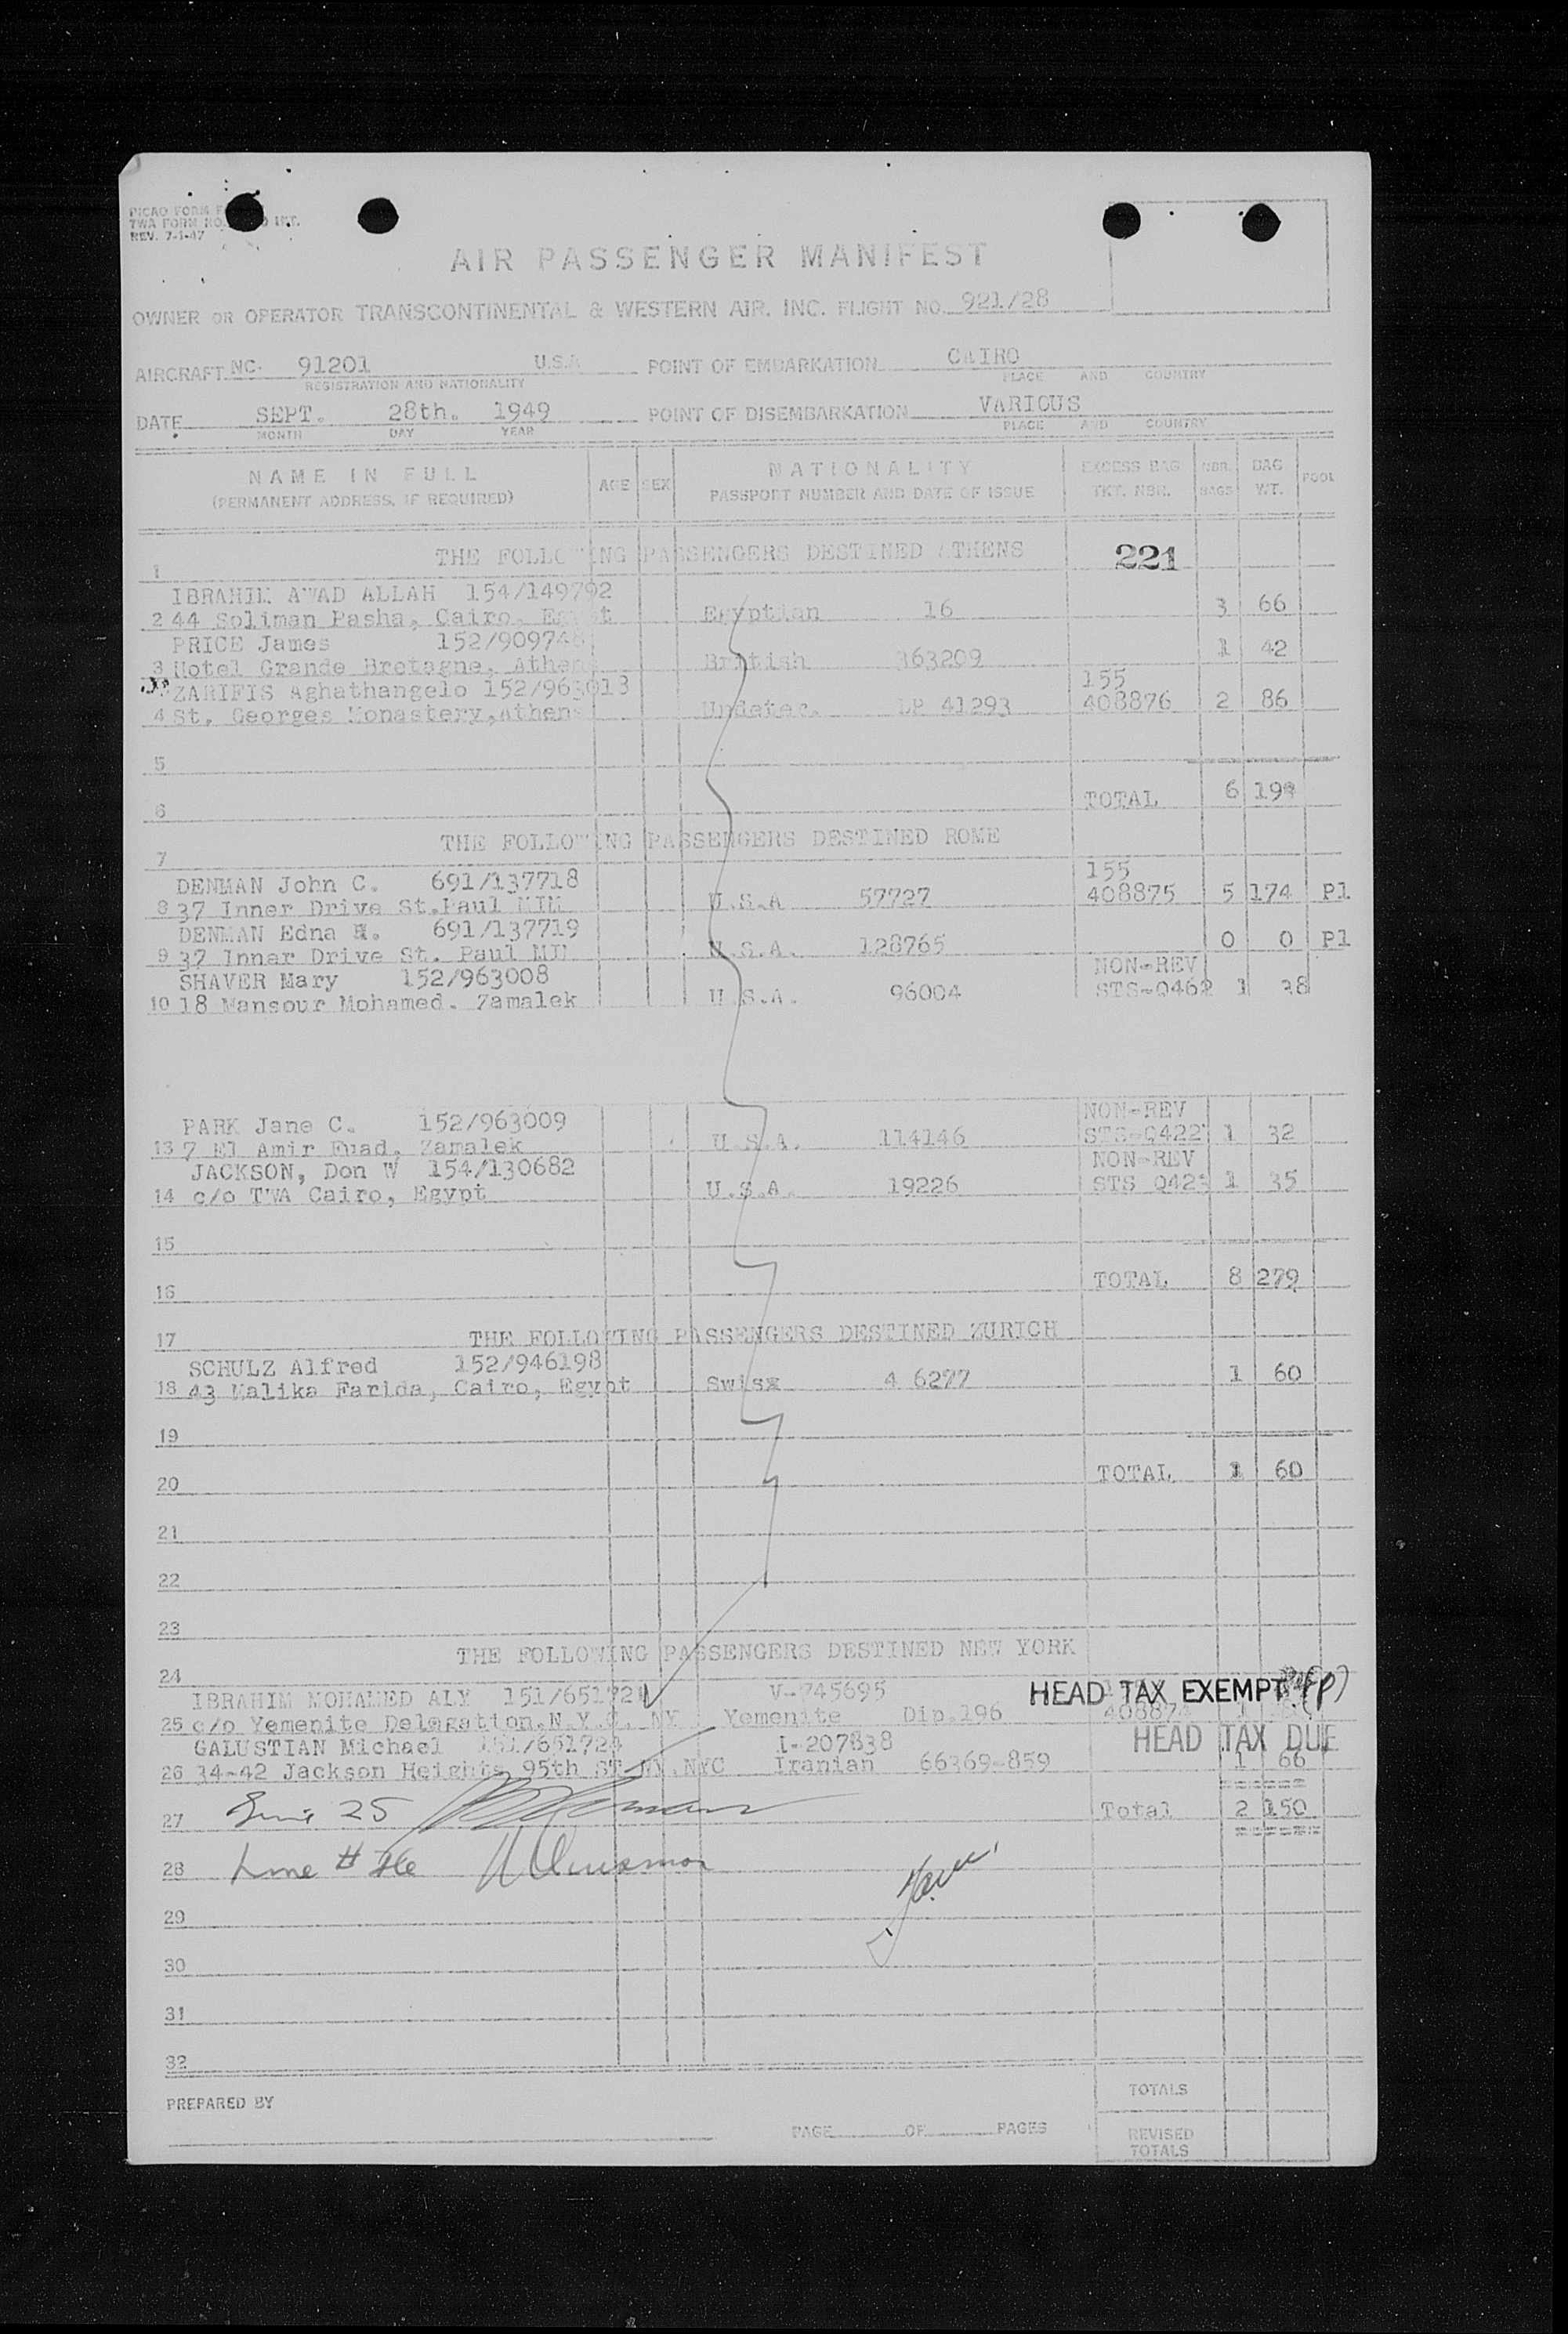 PICAO FORM
TWA FORM NO. INT.
REV. 7-1-47
AIR PASSENGER MANIFEST
OWNER OR OPERATOR TRANSCONTINENTAL & WESTERN AIR, INC. FLIGHT NO. 921/28
AIRCRAFT NC. 91201 U.S.A POINT OF EMBARKATION CAIRO
REGISTRATION AND NATIONALITY PLACE AND COUNTRY
DATE SEPT. 28th. 1949 POINT OF DISEMBARKATION VARIOUS
MONTH DAY YEAR PLACE AND COUNTRY
NAME IN FULL AGE SEX NATIONALITY EXCESS BAG NBR. BAG POOL
(PERMANENT ADDRESS, IF REQUIRED) PASSPORT NUMBER AND DATE OF ISSUE TKT. NBR. BAGS WT.
1 THE FOLLOWING PASSENGERS DESTINED ATHENS 221
IBRAHIM AWAD ALLAH 154/149792
2 44 Soliman Pasha, Cairo, Egypt Egyptian 16 3 66
PRICE James 152/90974
3 Hotel Grande Bretagne, Athens British 363209 1 42
ZARIFIS Aghathangelo 152/963013 155
4 St. Georges Monastery, Athens Undeter. LP 41293 408876 2 86
5
6 TOTAL 6 19
7 THE FOLLOWING PASSENGERS DESTINED ROME
DENMAN John C. 691/137718 155
8 37 Inner Drive St.Paul MIN U.S.A 57727 408875 5 174 Pl
DENMAN Edna H. 691/137719
9 37 Inner Drive St. Paul MIN U.S.A. 128765 0 0 Pl
SHAVER Mary 152/963008 NON-REV
10 18 Mansour Mohamed. Zamalek U.S.A. 96004 STS-Q462 1 38
PARK Jane C. 152/963009 NON-REV
13 7 El Amir Fuad, Zamalek U.S.A. 114146 STS-Q422 1 32
JACKSON, Don W 154/130682 NON-REV
14 c/o TWA Cairo, Egypt U.S.A. 19226 STS Q423 1 35
15
16 TOTAL 8 279
17 THE FOLLOWING PASSENGERS DESTINED ZURICH
SCHULZ Alfred 152/946198
18 43 Malika Farida, Cairo, Egypt Swiss 4 6277 1 60
19
20 TOTAL 1 60
21
22
23
24 THE FOLLOWING PASSENGERS DESTINED NEW YORK
IBRAHIM MOHAMED ALY 151/651721 V-745695 HEAD TAX EXEMPT
25 c/o Yemenite Delegation.N.Y.C. NY Yemenite Dip.196 408874 1
GALUSTIAN Michael 151/651724 I-207838 HEAD TAX DUE
26 34-42 Jackson Heights 95th ST NY.NYC Iranian 66369-859 1 66
27 Line 25 Total 2 150
28 Line # 26
29
30
31
32
TOTALS
PREPARED BY
PAGE OF PAGES REVISED
TOTALS